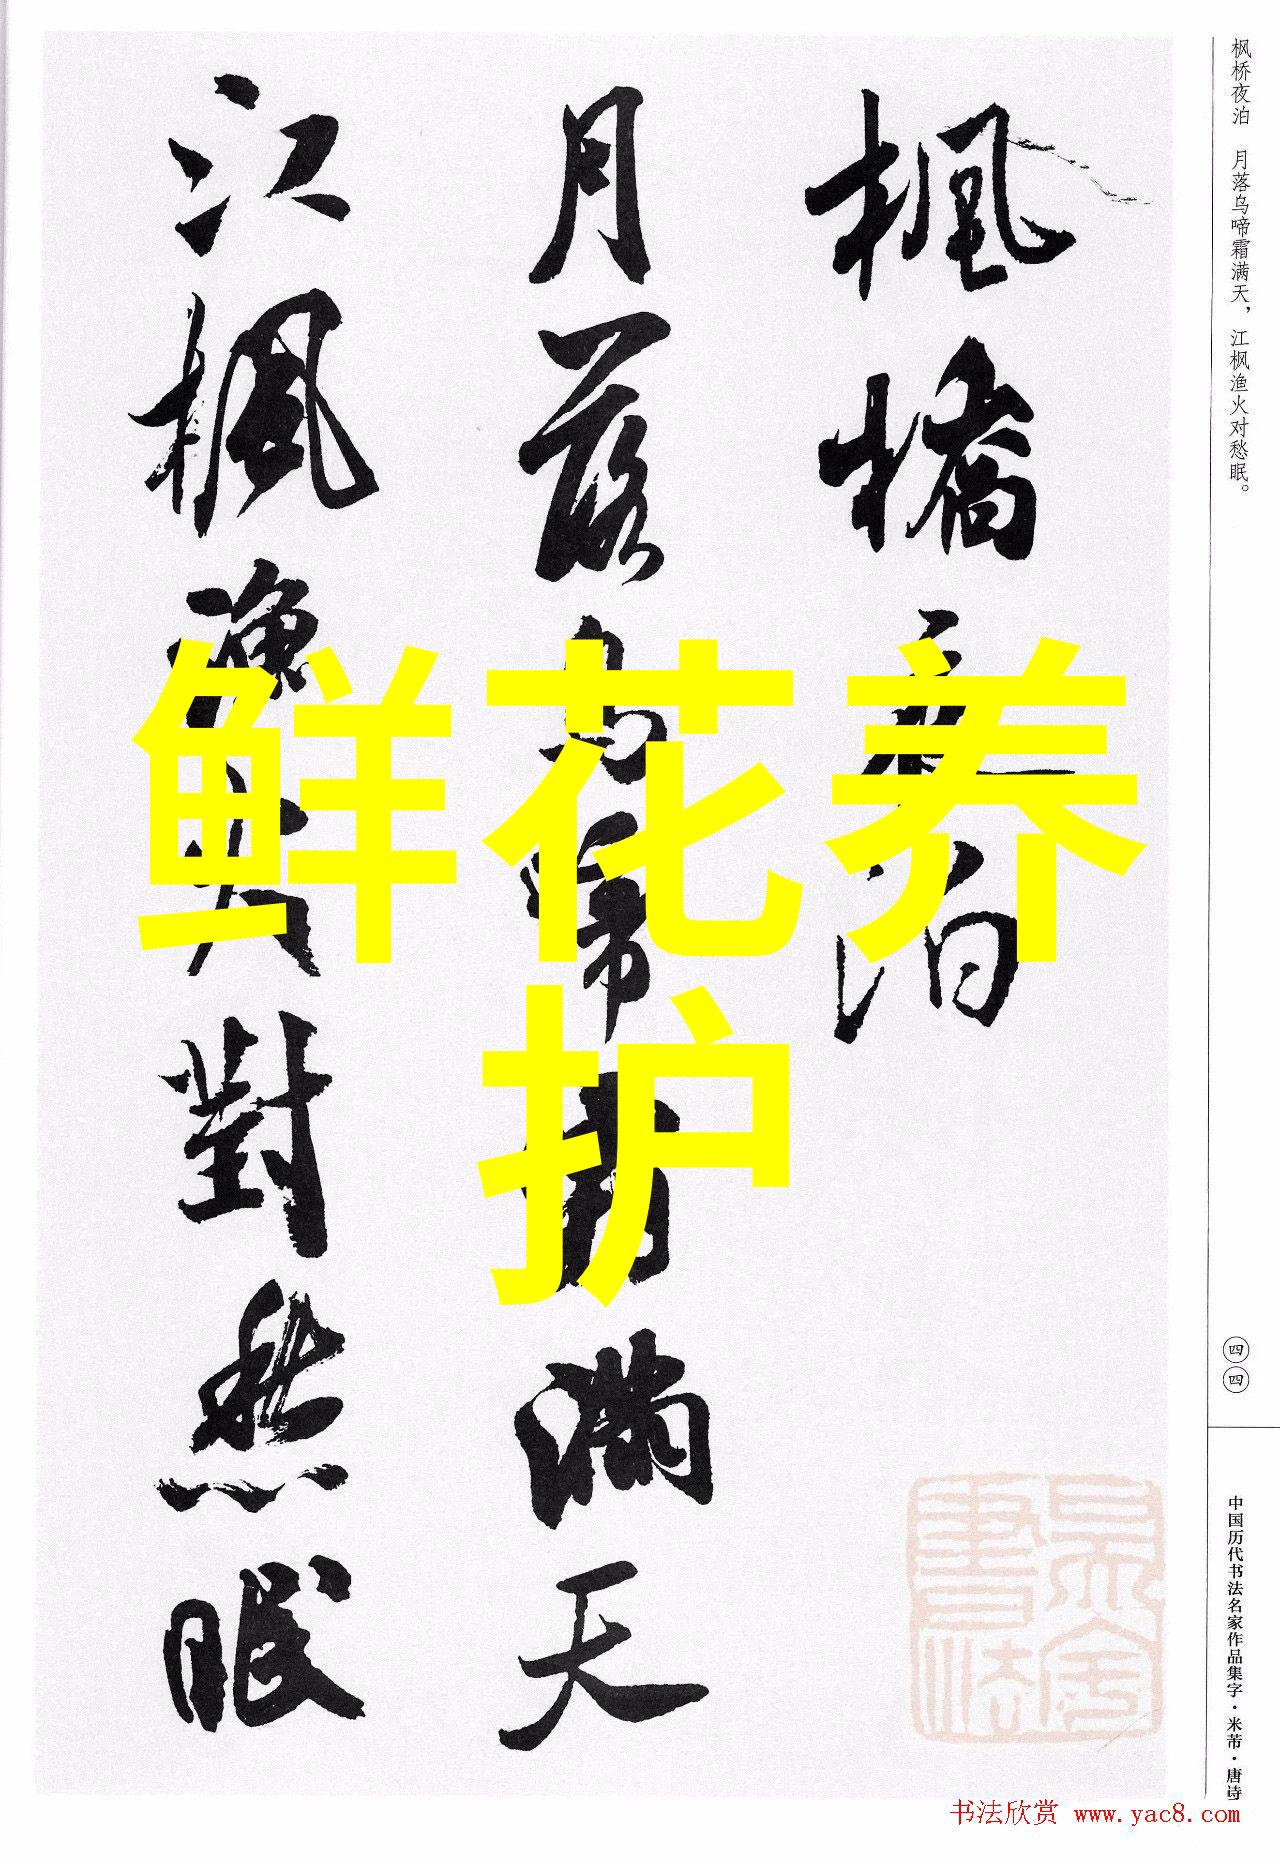 枫桥夜泊　月落乌啼霜满天，江枫渔火对愁眠。
楓橋夜泊
月落烏啼霜滿天
江楓漁火對愁眠
鲜花养
护
四四
中国历代书法名家作品集字·米芾·唐诗
书法欣赏 www.yac8.com